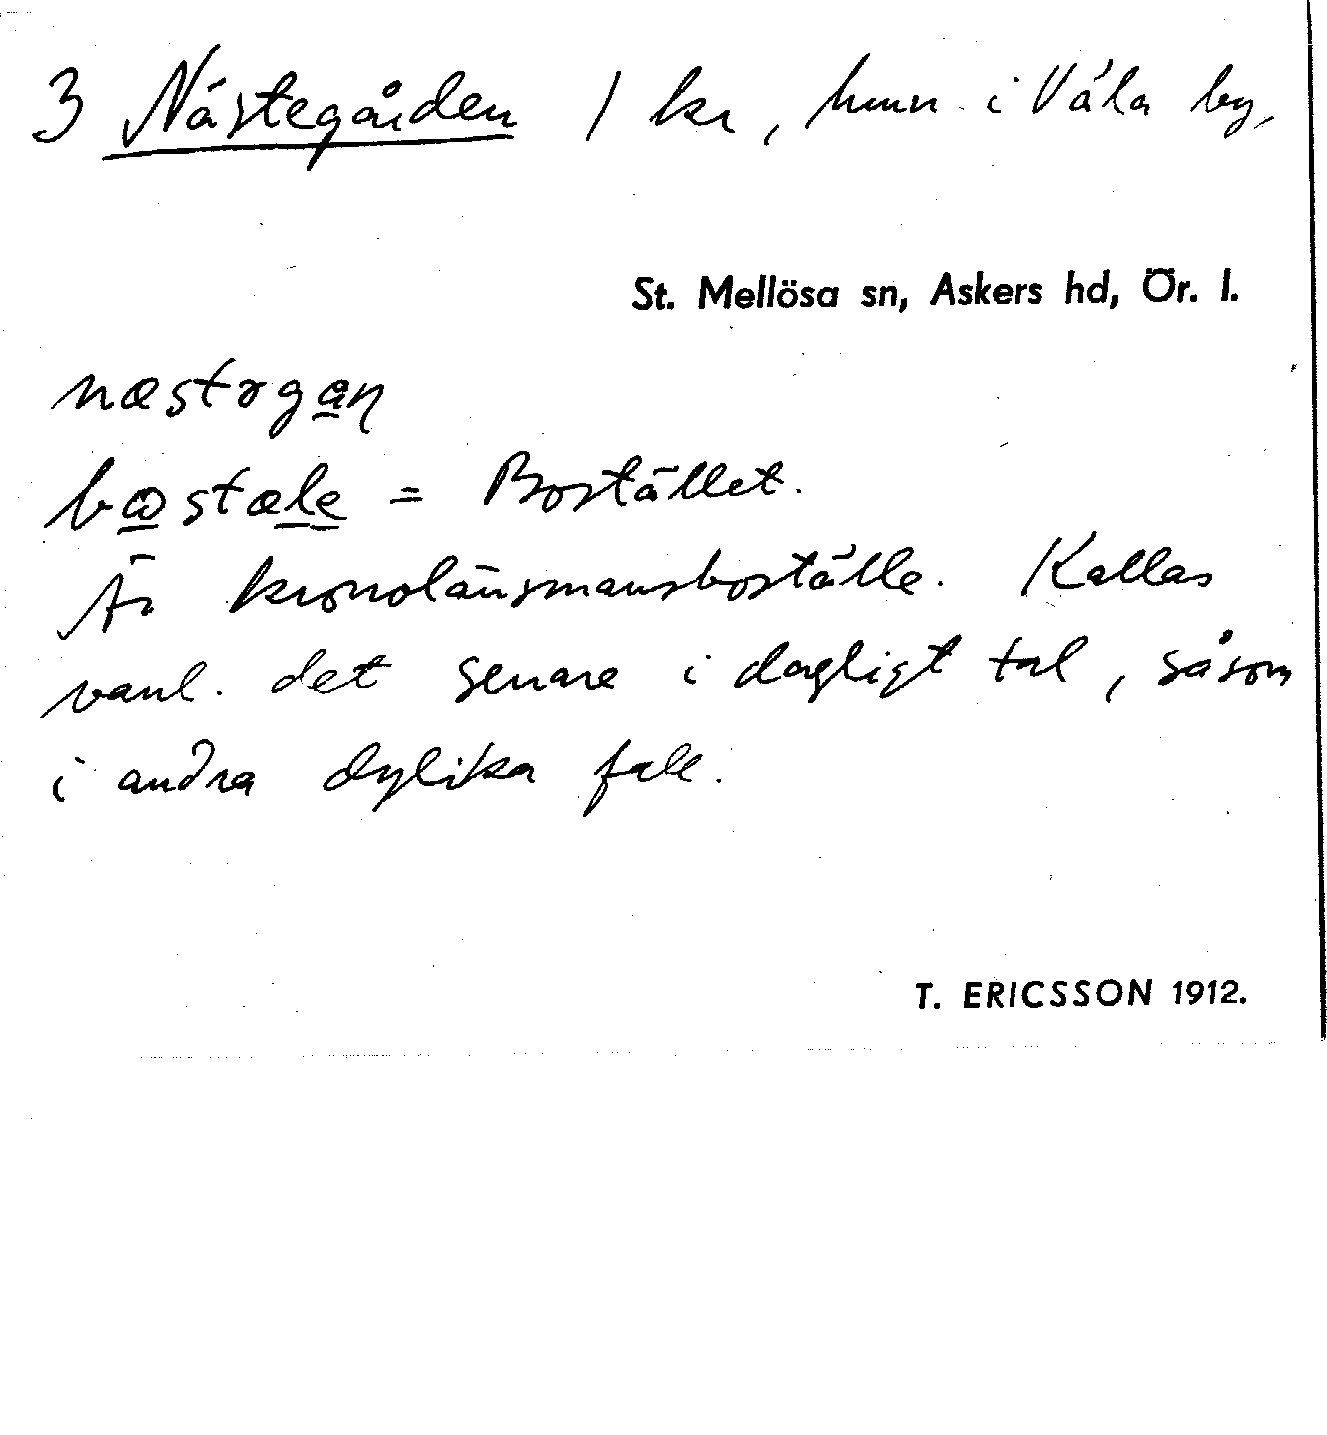 3 Nästegården 1 kr, hmn i Våla by,
St. Mellösa sn, Askers hd, Ör. l.
næstəgan
bωstæle = Bostället.
Är kronolänsmansboställe. Kallas
vanl. det senare i dagligt tal, såsom
i andra dylika fall.
T. ERICSSON 1912.